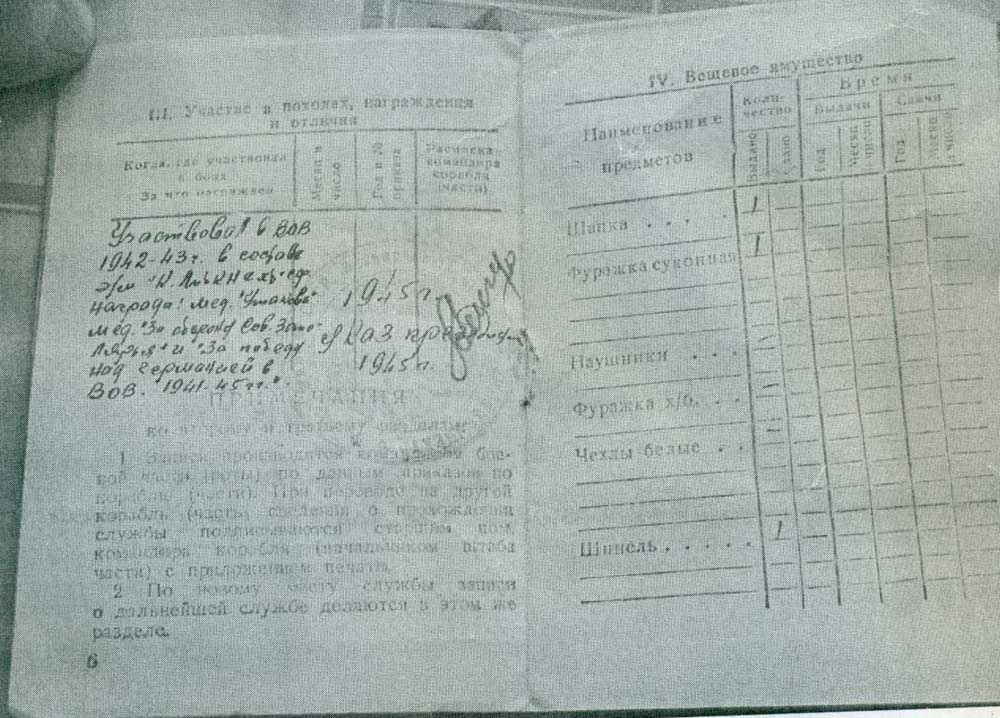 III. Участие в походах, награждения
и отличия
Когда, где участвовал
в боях
За что награжден
Месяц и
число
Год и №
приказа
Расписка
командира
корабля
(части)
Участвовал в ВОВ
1942-43 г. в составе
э/м
награда: мед. "Ушакова"
1945 г.
мед. "За оборону Сов. Запо-
лярья" и "За победу
Указ
над Германией в
1945 г.
ВОВ. 1941-45 гг."
ПРИМЕЧАНИЯ
ко второму и третьему разделам:
1 Записи производятся командирам бое-
вой части (роты) по данным приказов по
кораблю (части). При переводе на другой
корабль (часть) сведения о прохождении
службы подписываются старшим пом.
командира корабля (начальником штаба
части) с приложением печати.
2 По новому месту службы записи
о дальнейшей службе делаются в этом же
разделе.
6
IV. Вещевое имущество
Наименование
предметов
Коли-
чество
Время
Выдачи
Сдачи
Выдано
Сдано
Год
Месяц
и число
Год
Месяц
и число
Шапка . . . . . 1
Фуражка суконная 1
Наушники . . .
Фуражка х/б. . .
Чехлы белые . .
Шинель . . . . . 1